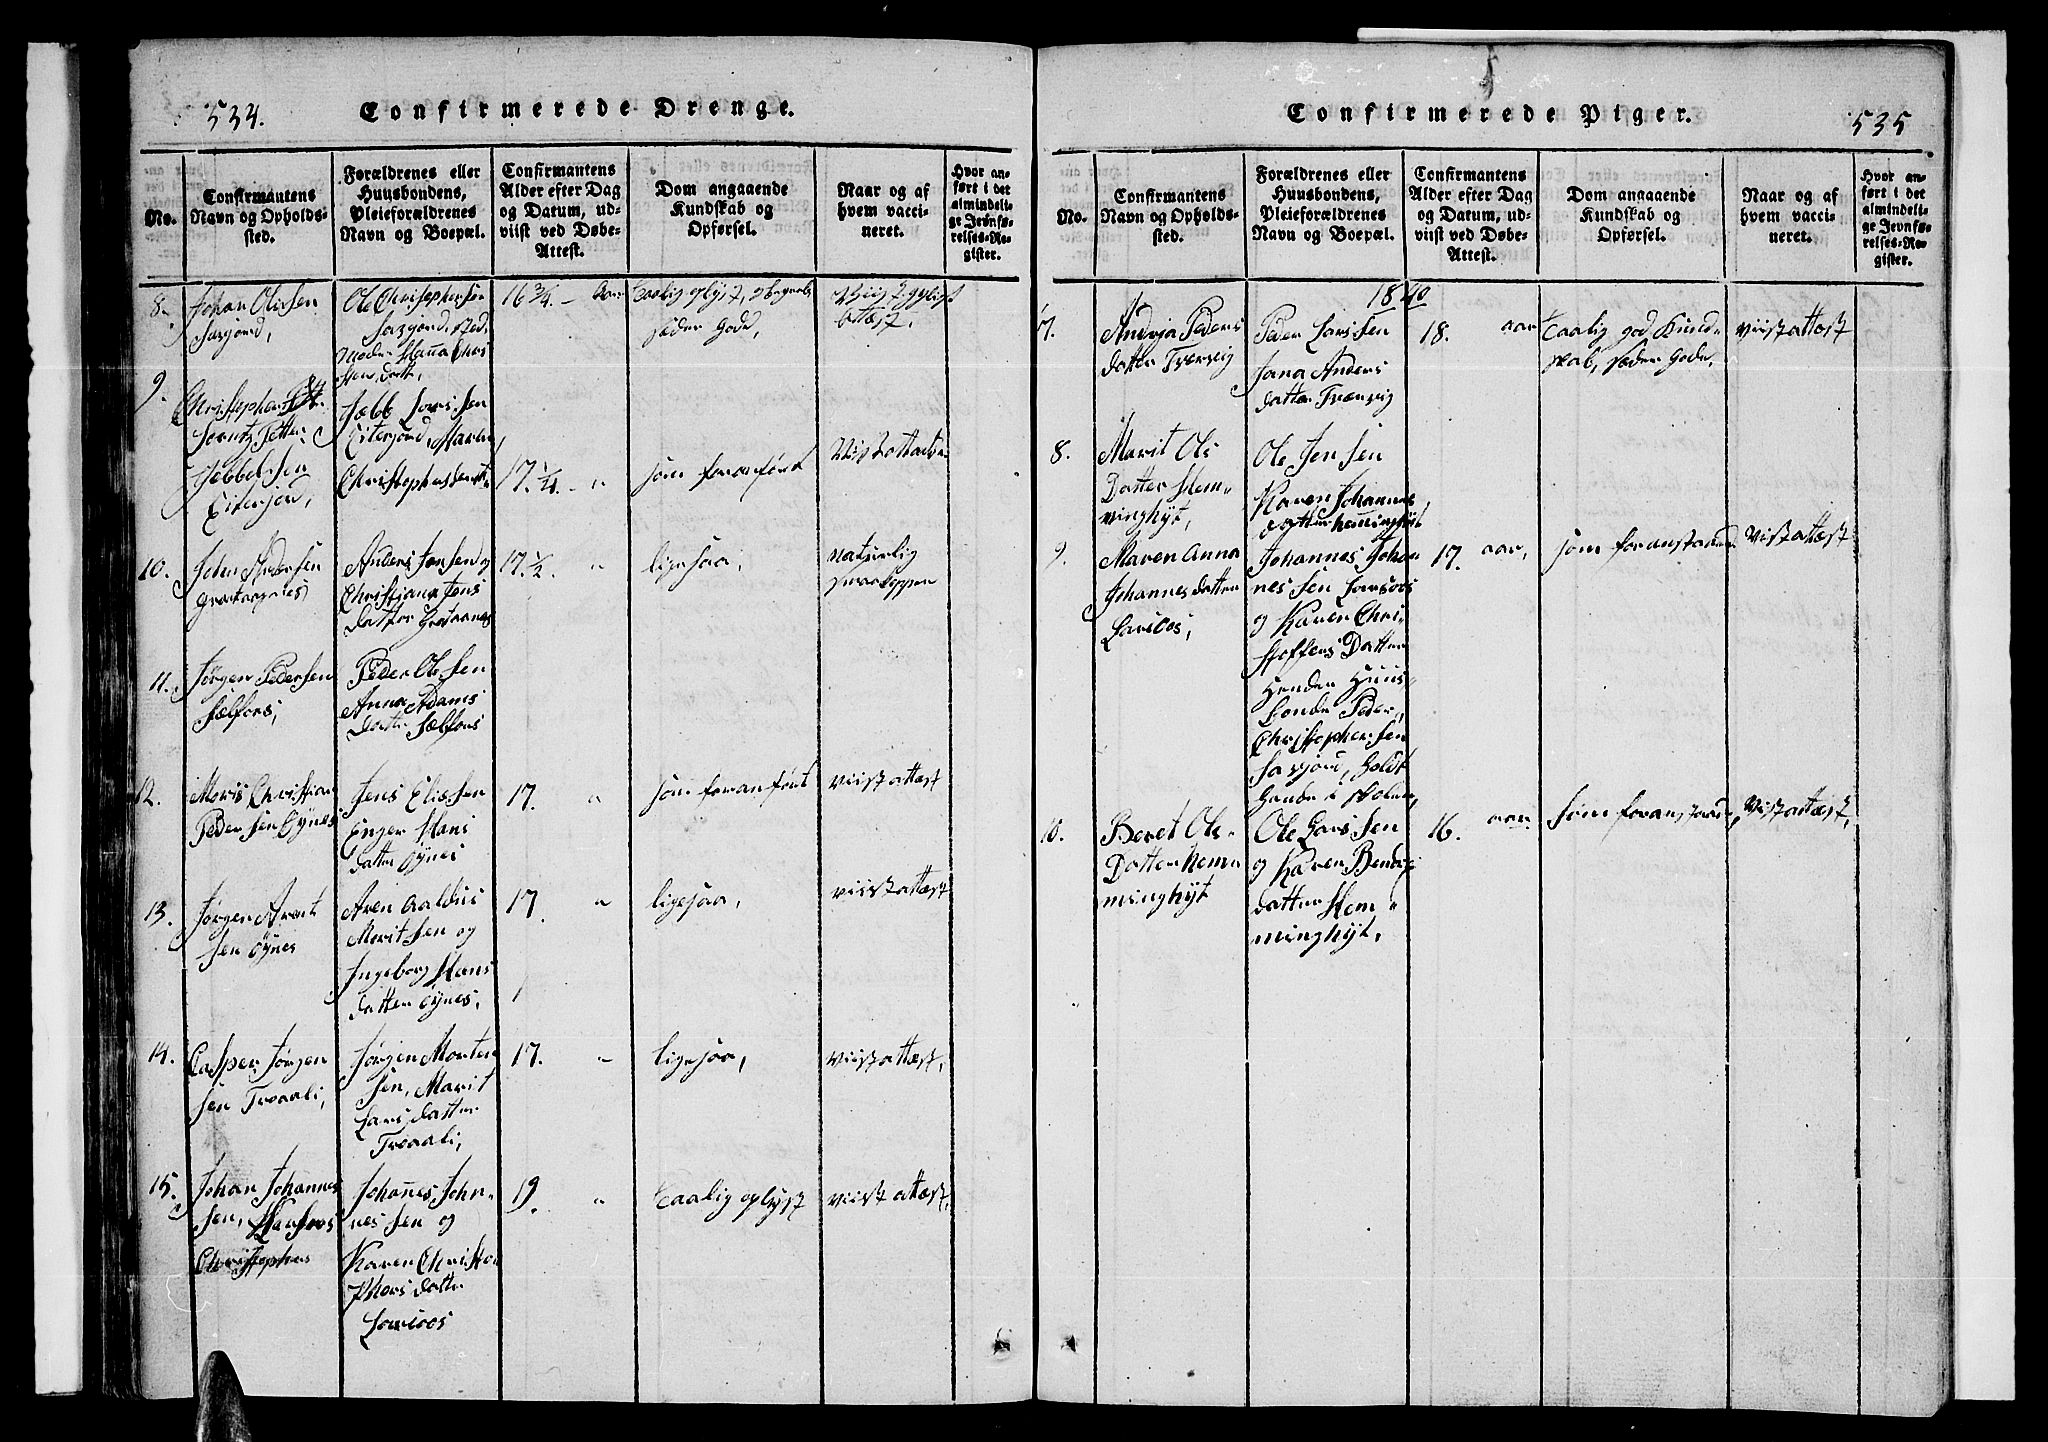 534.
Confirmerede Drenge.
No.
Confirmantens
Navn og Opholds-
sted.
Forældrenes eller
Huusbondens,
Pleieforældrenes
Navn og Boepæl.
Confirmantens
Alder efter Dag
og Datum, ud-
viist ved Døbe-
Attest.
Dom angaaende
Kundskab og
Opførsel.
Naar og af
hvem vacci-
neret.
Hvor an-
ført i det
almindeli-
ge Jevnfø-
relses-Re-
gister.
8.
Johan Olissen
Ole Christophersen
sted,
Moder Hanna Chris
datt,
16 3/4. - Aar
taalig oplyst,
sæder gode,
attest,
9.
Christopher
Lorntz Petter
Jebbelsen
Eiterjord,
Jæbb Larssen
Eiterjord, Maren
17. 1/4. - "
som foranført
Vist attest
10.
John Andersen
Anders Jensen og
Christiana Jens
Datter
17. 1/2. "
ligesaa,
naturlig
11.
Jørgen Pedersen
Sælfors,
Peder Olessen
Anna Adams
datter Sælfors
12.
Moris Christian
Pedersen Øynes
Jens Elissen
Enger Hans
datter Øynes
17. "
som foranført
viist attest
13.
Jørgen Arent
sen Øynes
Aren Aaldus
Moritsen og
Ingeborg Hans
datter Øynes,
17. "
ligesaa,
viist attest
14.
Casper Jørgen
sen Troaali,
Jørgen Morten
sen, Marit
Lars datter
Troaali,
17. "
ligesaa,
viist attest,
15.
Johan Johannes
sen,
Christophers
Johannes Johan-
nessen og
Karen Christo
phers datter
Larsoos
19. "
taalig oplyst
viist attest,
Confirmerede Piger.
535
No.
Confirmantens
Navn og Opholds-
sted.
Forældrenes eller
Huusbondens,
Pleieforældrenes
Navn og Boepæl.
Confirmantens
Alder efter Dag
og Datum, ud-
viist ved Døbe-
Attest.
Dom angaaende
Kundskab og
Opførsel.
Naar og af
hvem vacci-
neret.
Hvor an-
ført i det
almindeli-
ge Jevnfø-
relses-Re-
gister.
1840
7.
Andrea Peders
datter Trærvig
Peder Larssen
Jana Anders
datter Trærvig
18. aar
taalig god Kund-
skab, sæder gode,
viist attest
8.
Marit Ols
Datter Hem-
minghyt,
Ole Jenssen
Karen Johannes
datter heminghyt
9.
Maren Anna
Johannesdatter
Larsoos,
Johannes Johan
nessen Larsoos
og Karen Chri-
stoffers Datter
Hendes Huus-
bonde Peder
Christophersen
Saxjord,
17. aar,
som foranstaaende
Vist attest
10.
Beret Ols-
Datter hem
minghyt
Ole Larssen
og Karen
datter Hem-
minghyt,
16. aar.
som foranstaaende,
Vist attest,